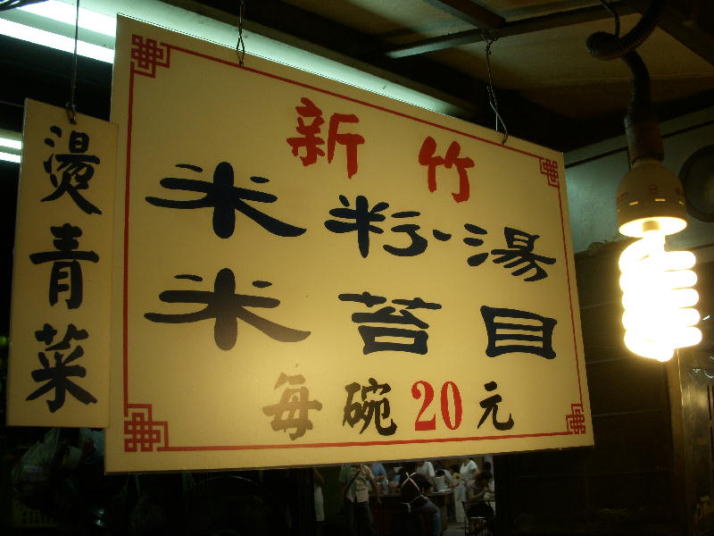 新竹
米籽湯
米苔目
每碗20元
燙青菜